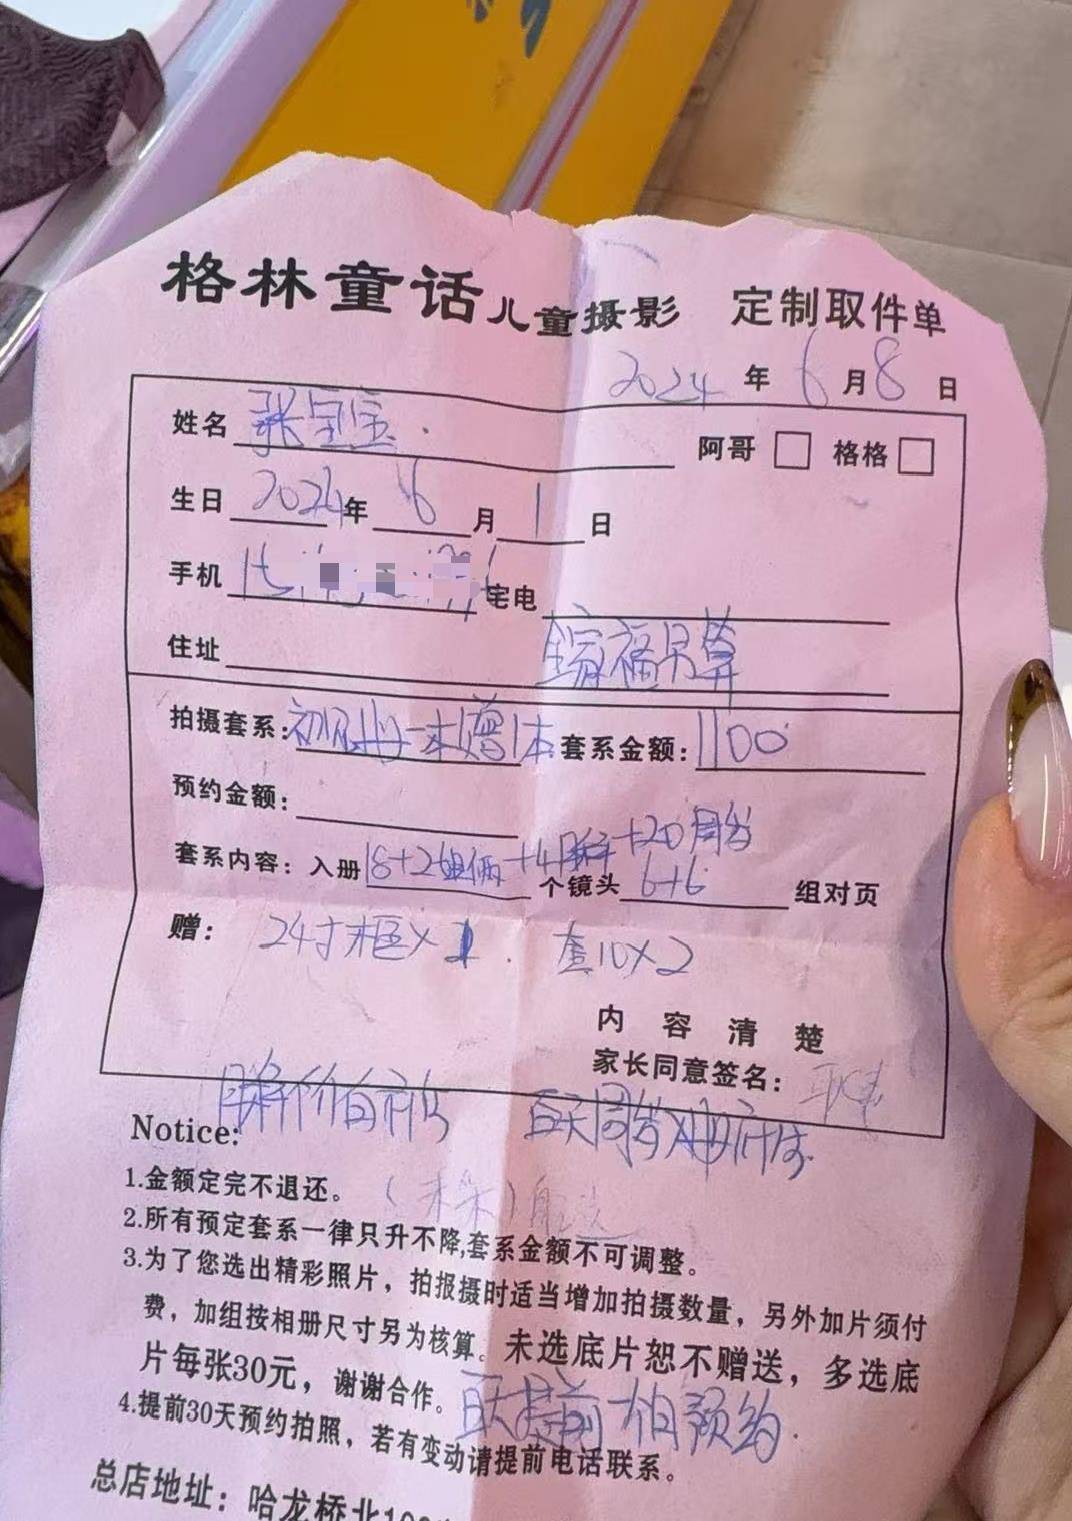 格林童话儿童摄影 定制取件单
2024年6月8日
姓名 张宝宝 阿哥 格格
生日 2024年6月1日
手机 宅电
住址
拍摄套系: 赠1本 套系金额: 1100
预约金额:
套系内容: 入册 18+2姐俩+4 +20周岁 个镜头 6+6 组对页
赠: 24寸框×1 套10×2
内容清楚
家长同意签名:
百天周岁
Notice:
1.金额定完不退还。
2.所有预定套系一律只升不降,套系金额不可调整。
3.为了您选出精彩照片，拍报摄时适当增加拍摄数量，另外加片须付
费，加组按相册尺寸另为核算。未选底片恕不赠送，多选底
片每张30元，谢谢合作。百天提前1个拍预约.
4.提前30天预约拍照，若有变动请提前电话联系。
总店地址：哈龙桥北